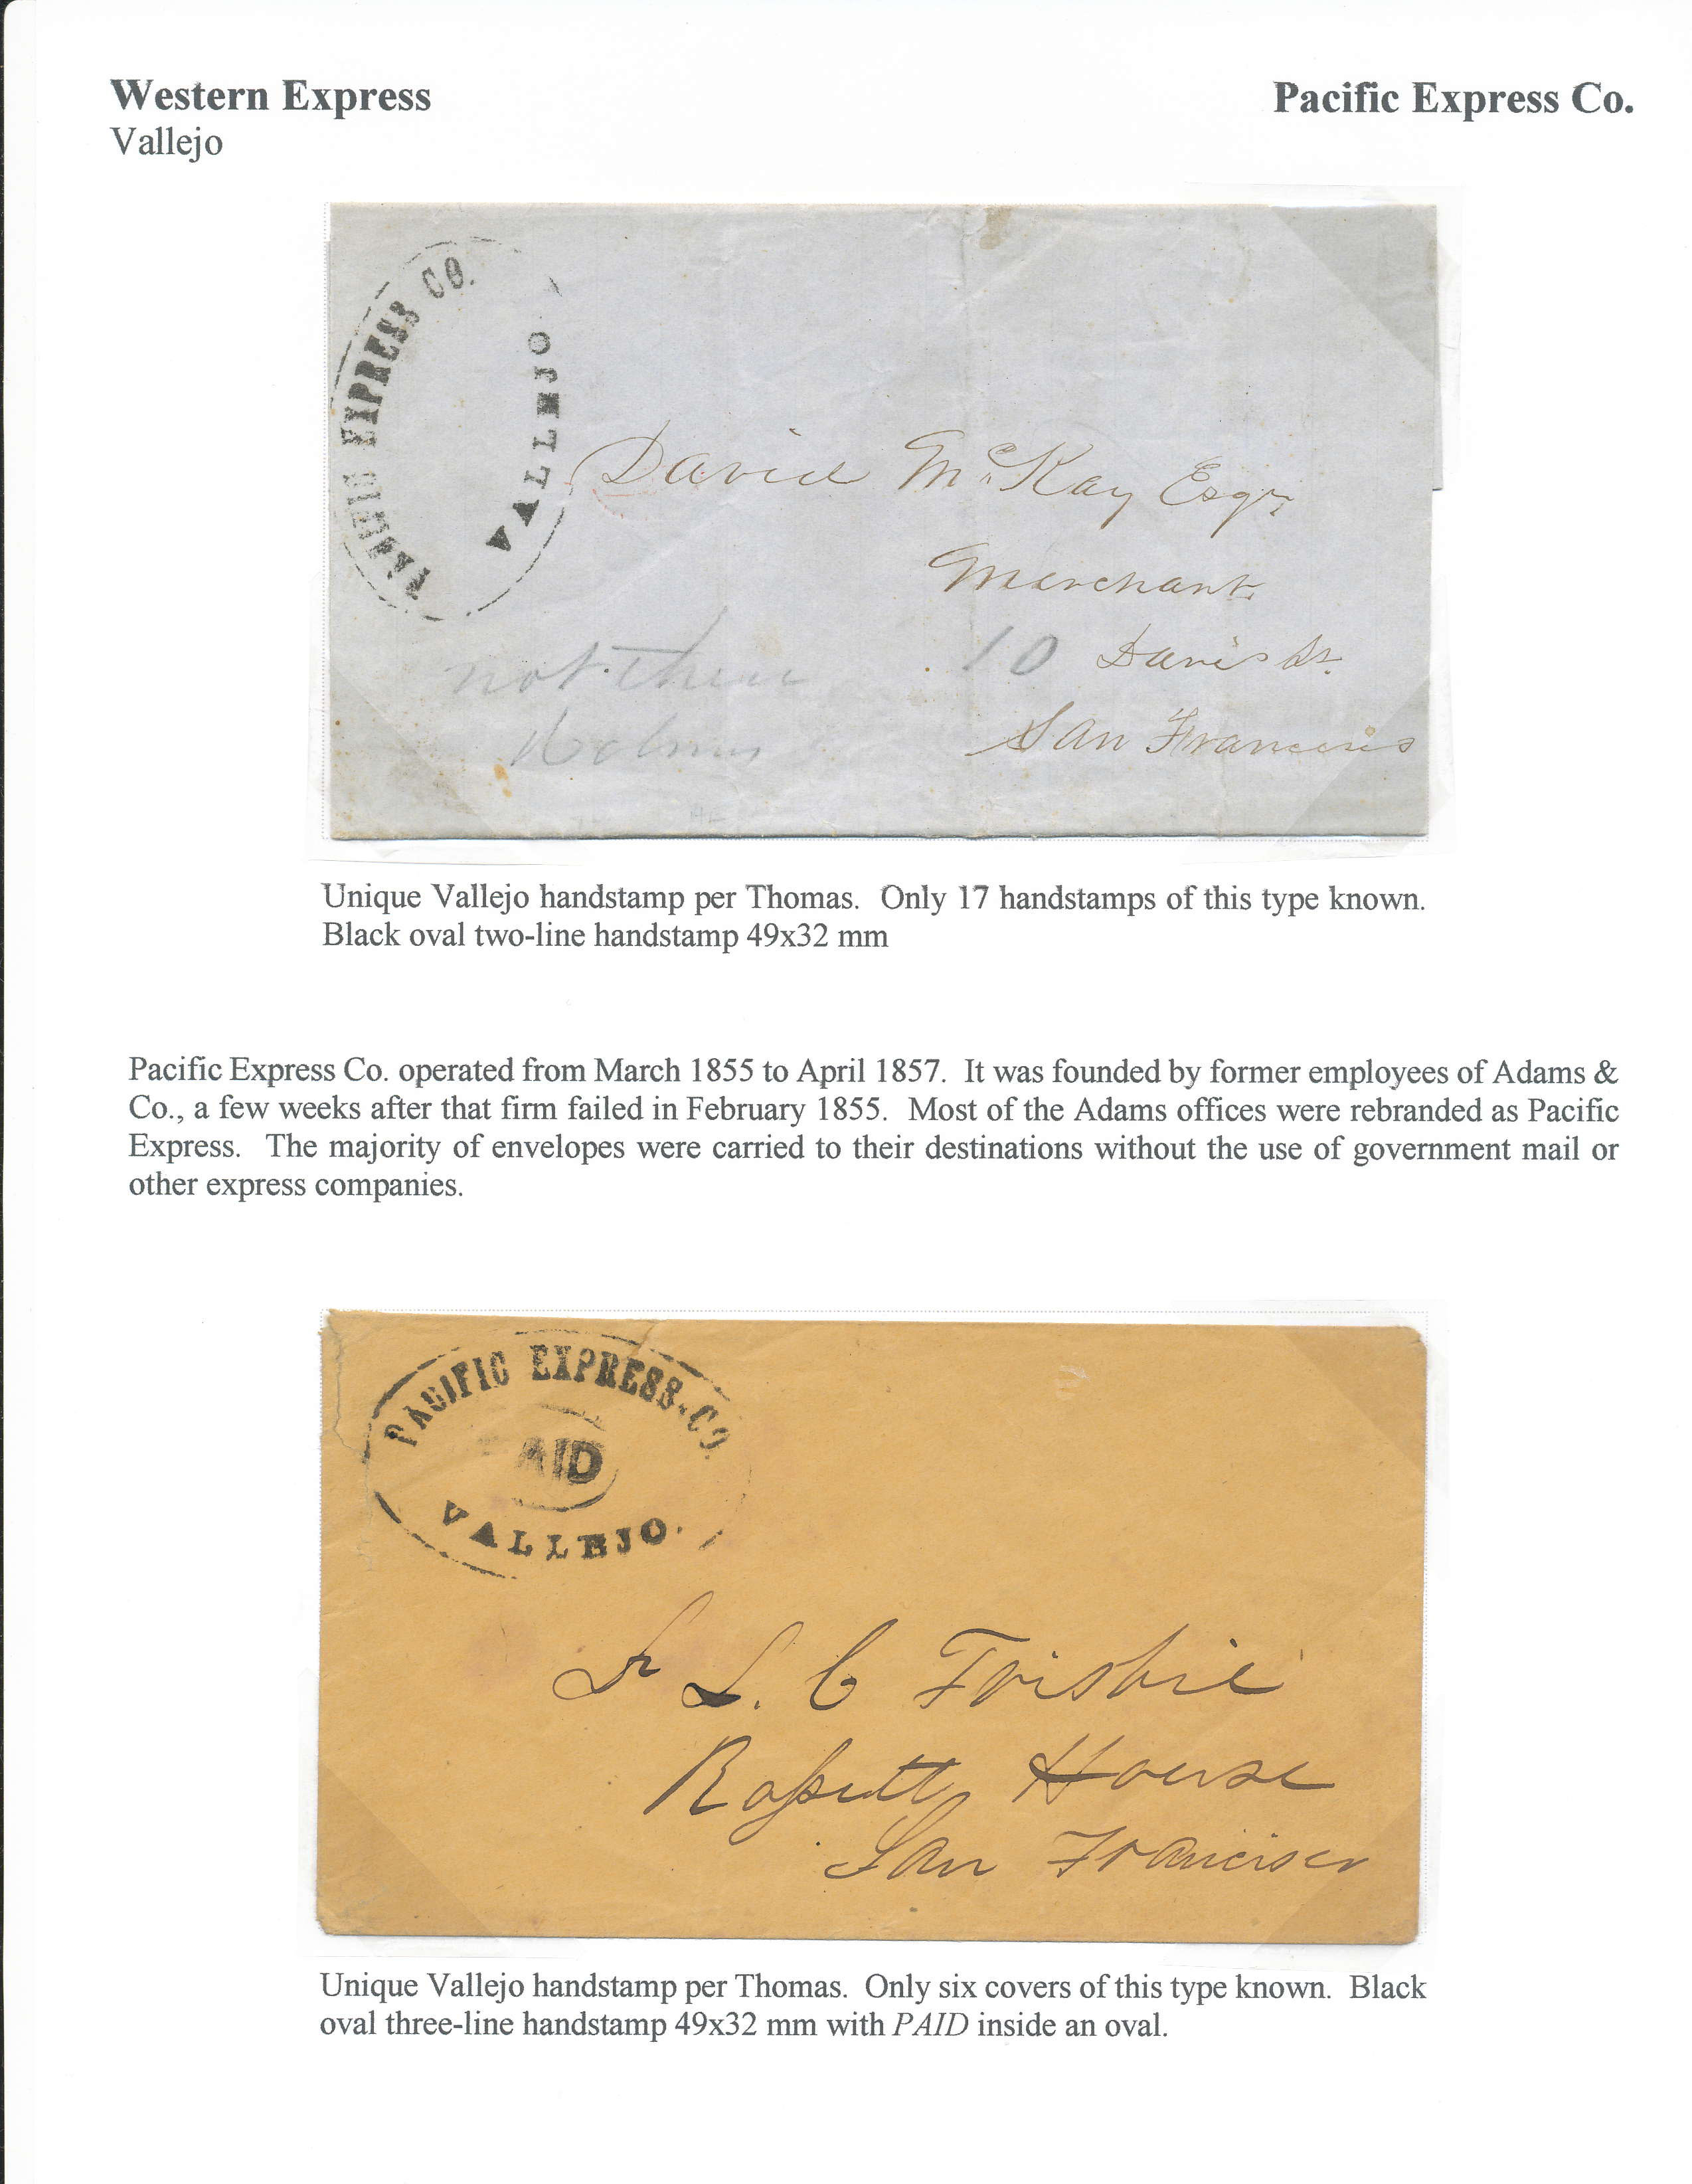 Western Express
Pacific Express Co.
Vallejo
PACIFIC EXPRESS CO.
VALLEJO.
David McKay Esqr.
Merchant
10 Davis St.
San Francisco
not there
Unique Vallejo handstamp per Thomas. Only 17 handstamps of this type known.
Black oval two-line handstamp 49x32 mm
Pacific Express Co. operated from March 1855 to April 1857. It was founded by former employees of Adams &
Co., a few weeks after that firm failed in February 1855. Most of the Adams offices were rebranded as Pacific
Express. The majority of envelopes were carried to their destinations without the use of government mail or
other express companies.
PACIFIC EXPRESS CO.
PAID
VALLEJO.
L. C Frisbie
Rassett House
San Francisco
Unique Vallejo handstamp per Thomas. Only six covers of this type known. Black
oval three-line handstamp 49x32 mm with PAID inside an oval.